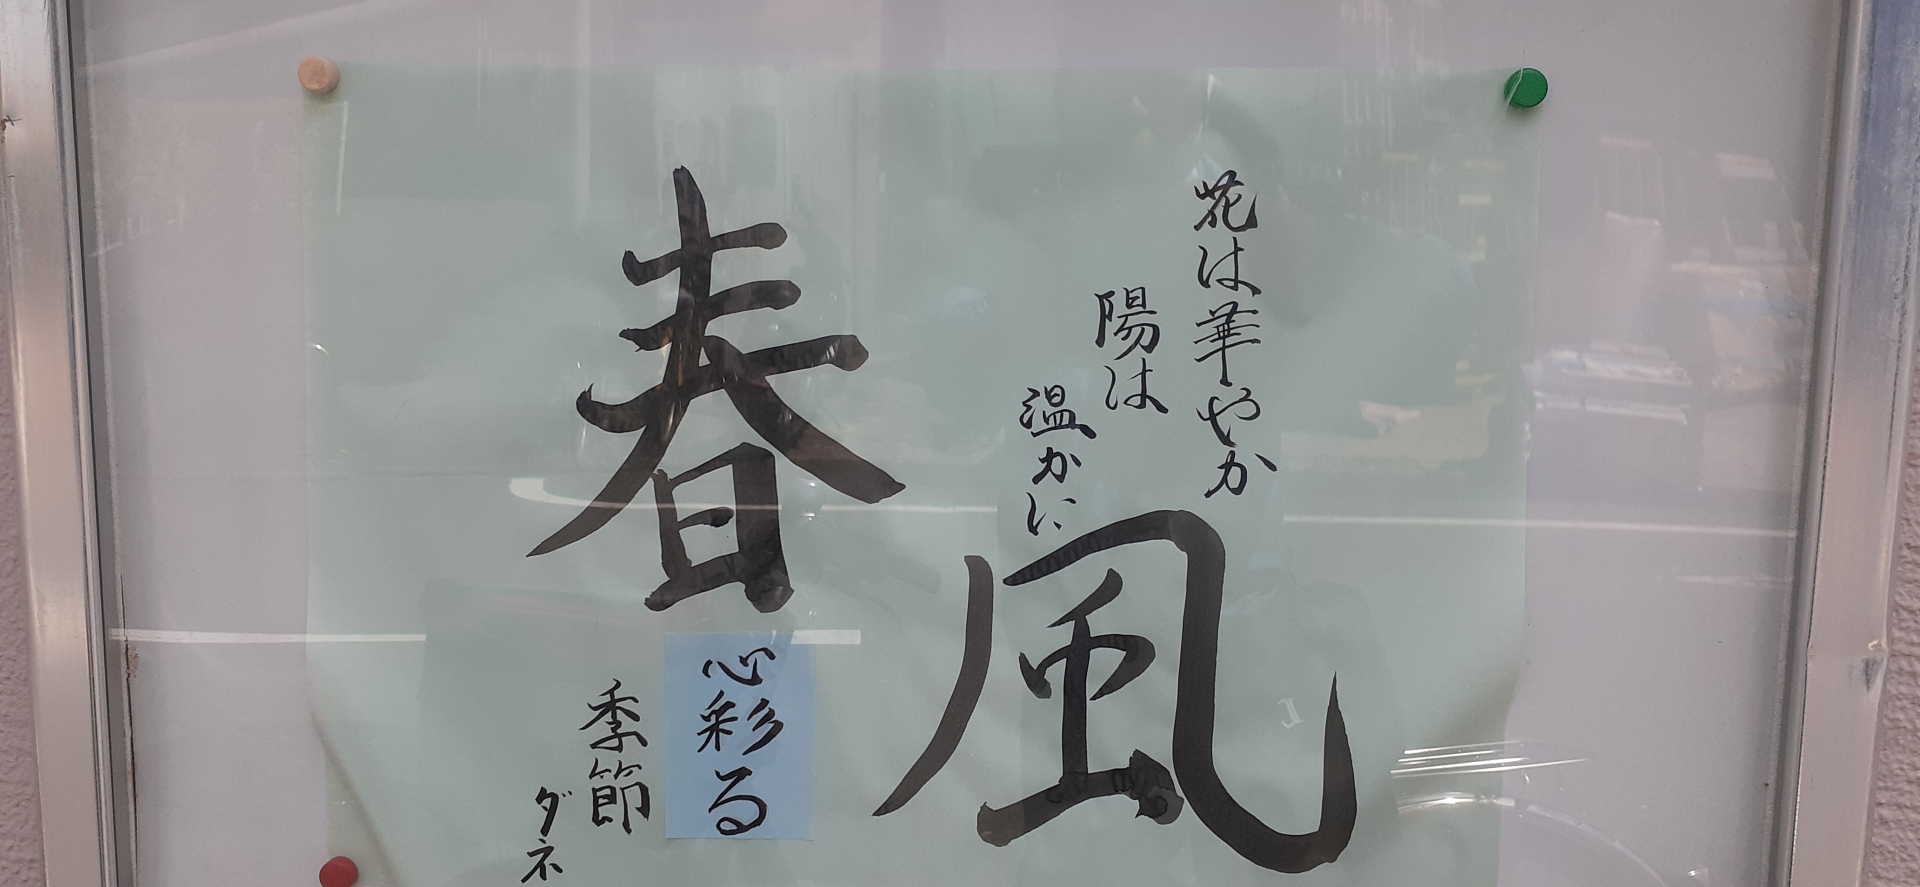 花は華やか
陽は
温かに
春風
心彩る
季節
ダネ